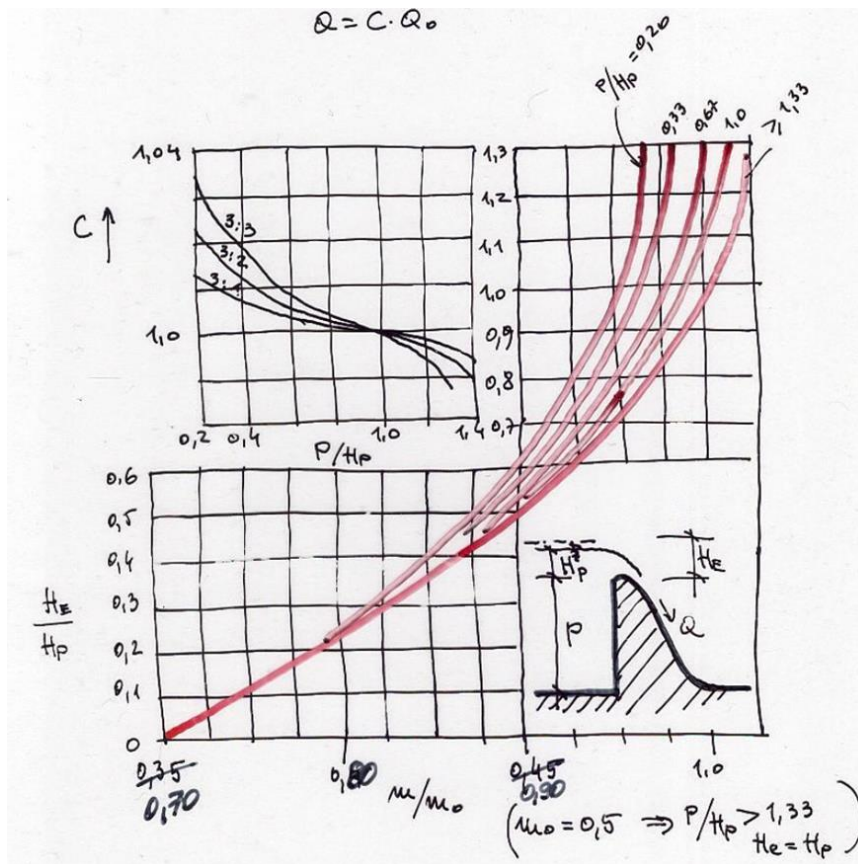 Q = C · Q₀
P/HP = 0,20
0,33
0,67
1,0
≥ 1,33
1,04
C ↑
3:3
3:2
3:1
1,0
0,2 0,4 1,0 1,4
P/HP
1,3
1,2
1,1
1,0
0,9
0,8
0,7
0,6
0,5
0,4
0,3
0,2
0,1
0
HE
HP
HP
HE
P
Q
0,35 0,45 1,0
0,70 0,80 0,90
m/m₀
(m₀ = 0,5 ⇒ P/HP > 1,33
He = HP)